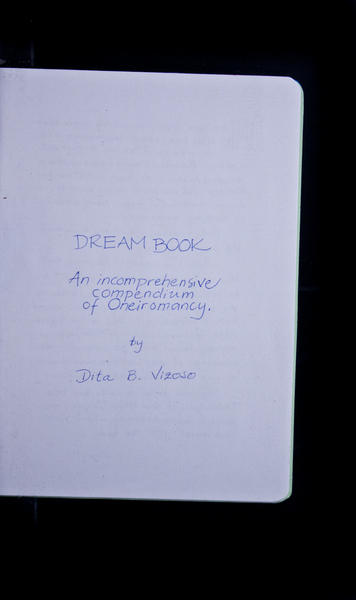 DREAM BOOK
An incomprehensive
compendium
of Oneiromancy.
by
Dita B. Vizoso